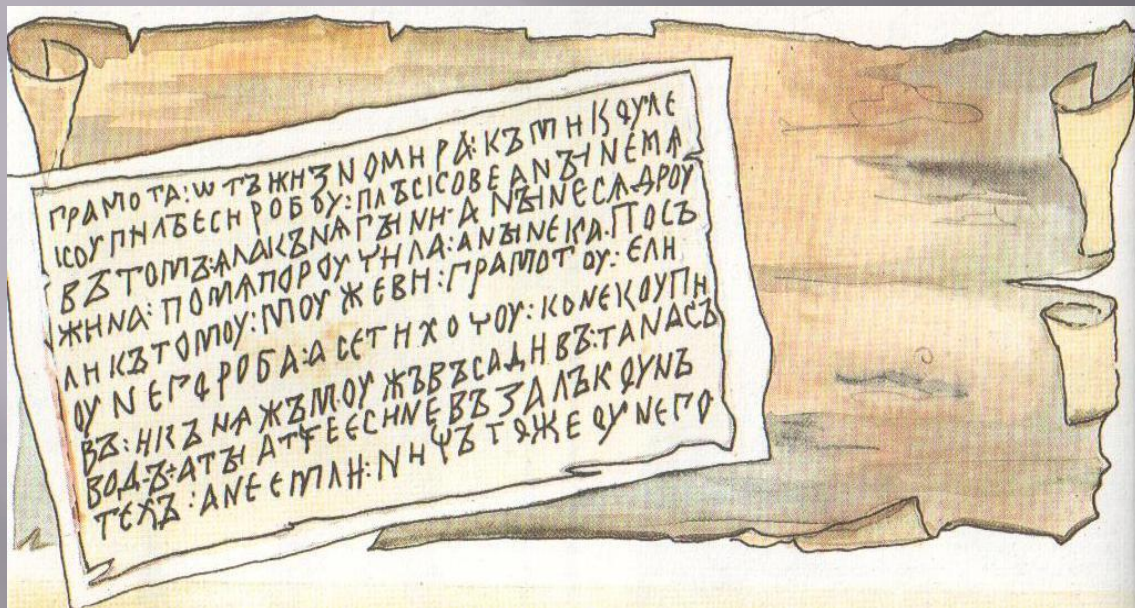 ГРАМОТА:ѠТЪЖИЗНОМИРА:КЪМИКОУЛЕ
КОУПИЛЪЕСИРОБОУ:ПЛЪСКОВЕАНЪІНЕМѦ
ВЪТОМЪ:АЛАКЪНАГЪІНИ·АНЪІНЕСѦДРОУ
ЖИНА:ПОМАПОРОУЧИЛА:АНЪІНЕКА.ПОСЪ
ЛИКЪТОМОУ:МОУЖЕВИ:ГРАМОТОУ:ЕЛИ
ОУНЕГОРОБА:АСЕТИХОЧОУ:КОНЕКОУПИ
ВЪ:ИКЪНАЖЪМОУЖЪВЪСАДИВЪ:ТАНАСЪ
ВОДЪ:АТЪІАТЧЕЕСИНЕВЪЗАЛЪКОУНЪ
ТЕХЪ:АНЕЕМЛИ:НИЧЪТОЖЕОУНЕГО